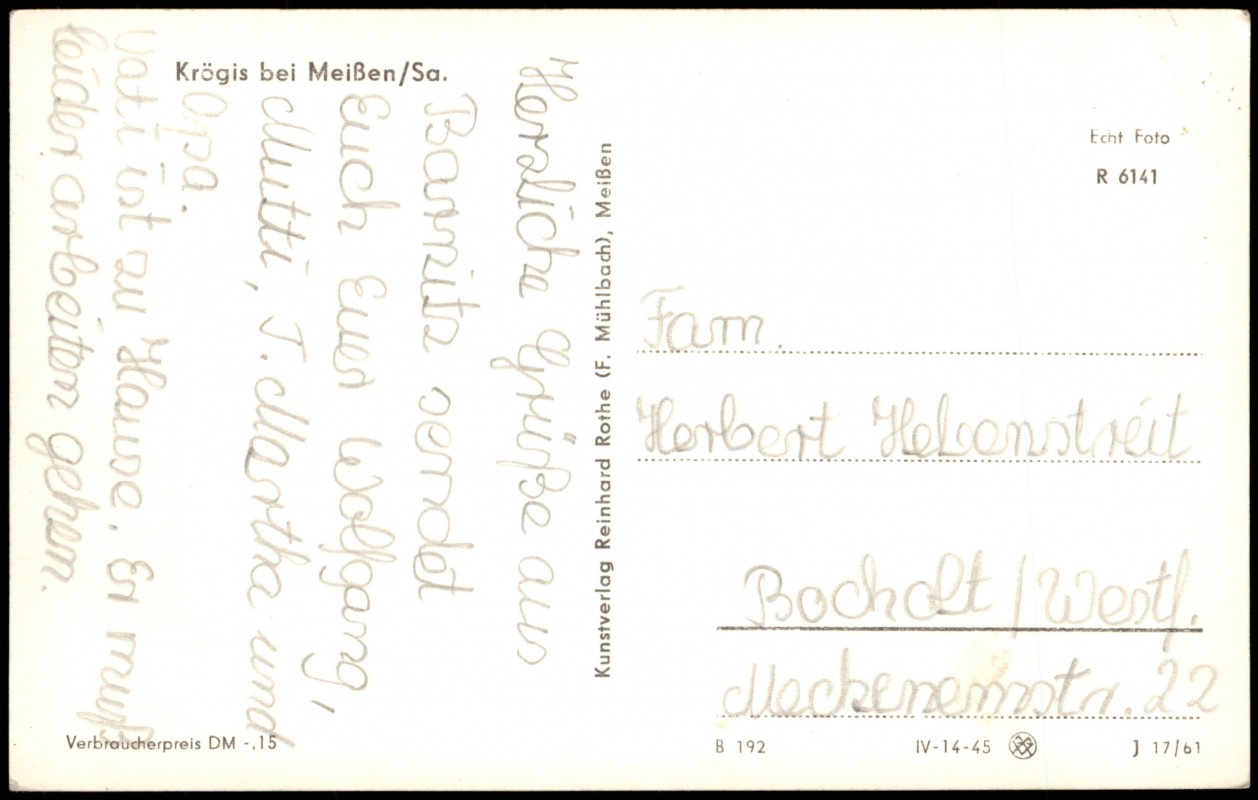 Krögis bei Meißen/Sa.
Herzliche Grüße aus
Barnitz sendet
Euch Euer Wolfgang,
Mutti, T. Martha und
Opa.
Vati ist zu Hause. Er muß
leider arbeiten gehen.
Kunstverlag Reinhard Rothe (F. Mühlbach), Meißen
Echt Foto
R 6141
Fam.
Herbert Hebenstreit
Bocholt / Westf.
Meckenemstr. 22
Verbraucherpreis DM -,15
B 192
IV-14-45
J 17/61